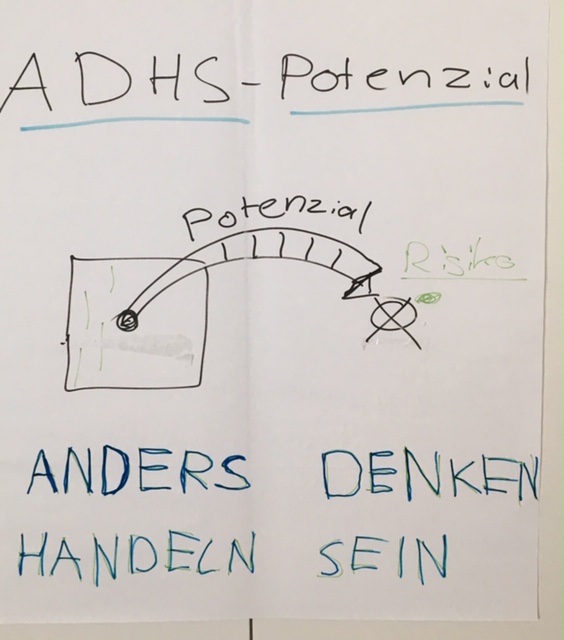 ADHS-Potenzial
Potenzial
Risiko
ANDERS DENKEN
HANDELN SEIN